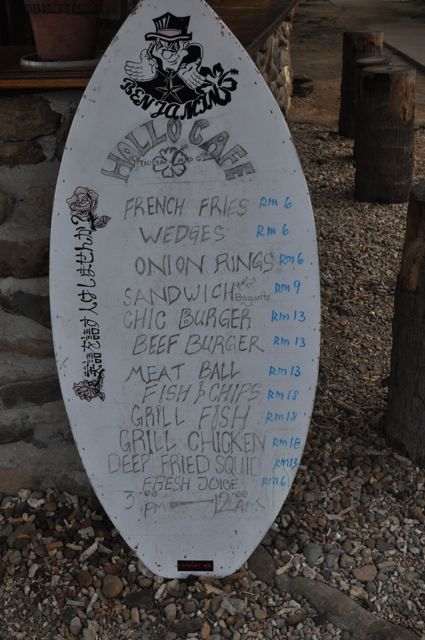 BENJAMIN
HOLLO CAFE
FRENCH FRIES RM 6
WEDGES RM 6
ONION RINGS RM 6
SANDWICH Baguette RM 9
CHIC BURGER RM 13
BEEF BURGER RM 13
MEAT BALL RM 13
FISH & CHIPS RM 18
GRILL FISH RM 18
GRILL CHICKEN RM 18
DEEP FRIED SQUID RM 13
FRESH JOICE RM 6
3.00 PM 12.00 AM
英語を話す人けしませんか?